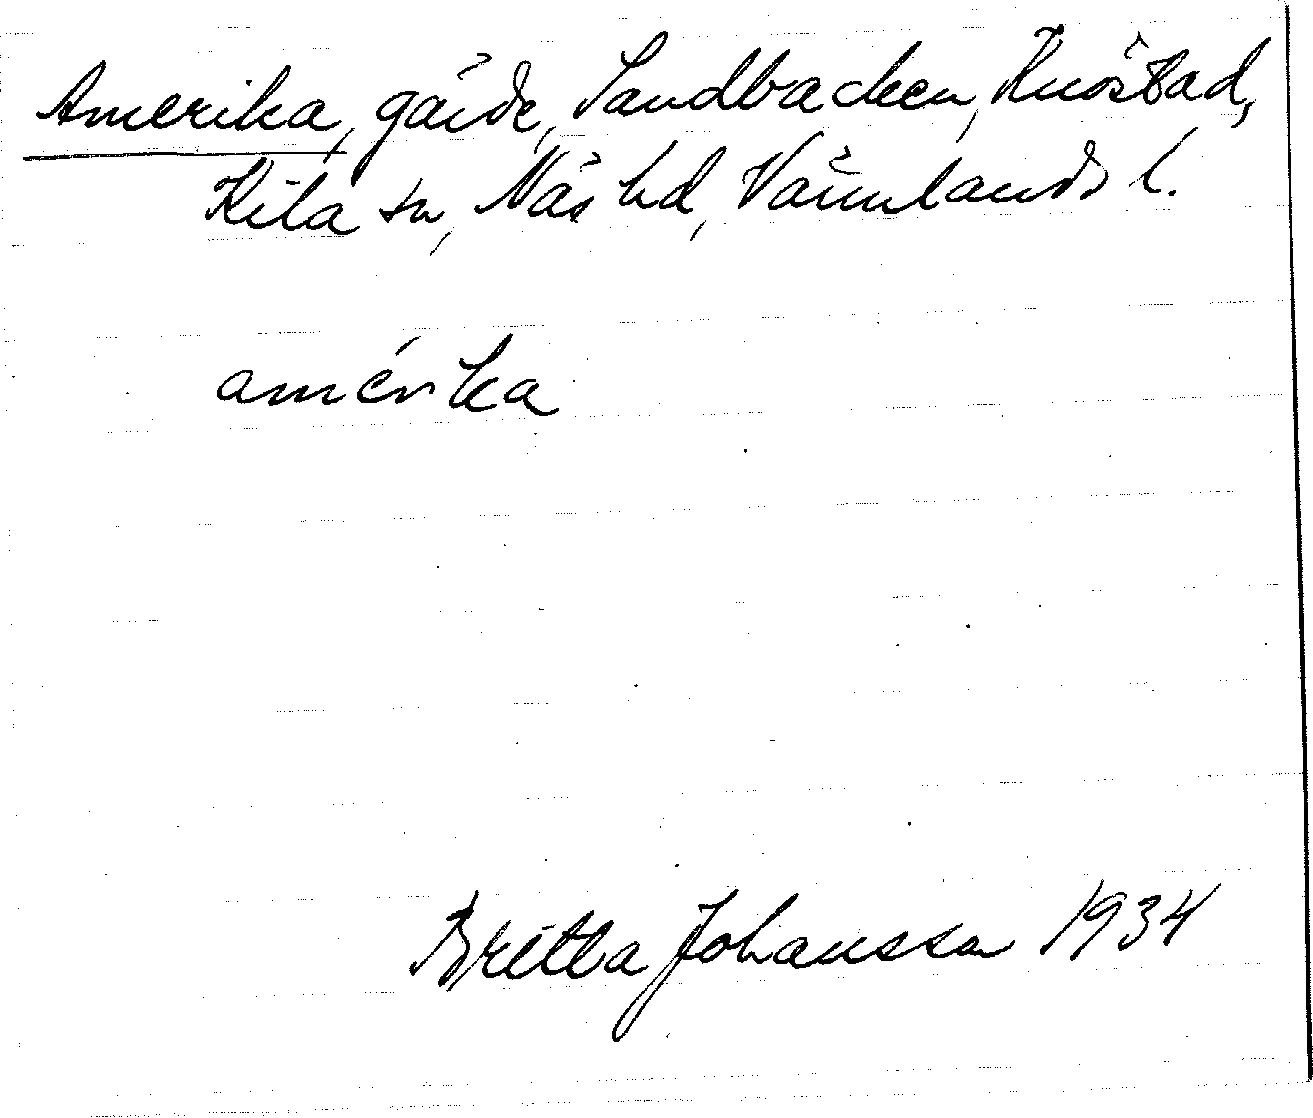 Amerika, gärde, Sandbacken, Knöstad,
Kila sn, Näs hd, Värmlands l.
amérika
Britta Johansson 1934